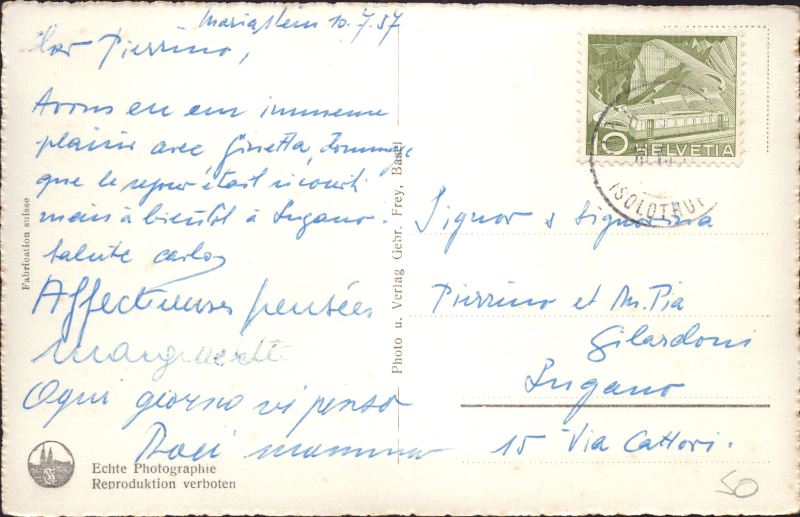 Mariastein 10.7.57
Cher Pierrino,
Avons eu un immense
plaisir avec Ginetta, dommage
que le sejour était si court
mais à bientôt à Lugano.
Salute Carlo
Affectueuses pensées
Marguerite
Ogni giorno vi penso
Baci mamma
Echte Photographie
Reproduktion verboten
Fabrication suisse
Photo u. Verlag Gebr. Frey, Basel
10 HELVETIA
(SOLOTHUR
Signor e Signorina
Pierrino et M. Pia
Gilardoni
Lugano
15 Via Cattori.
50